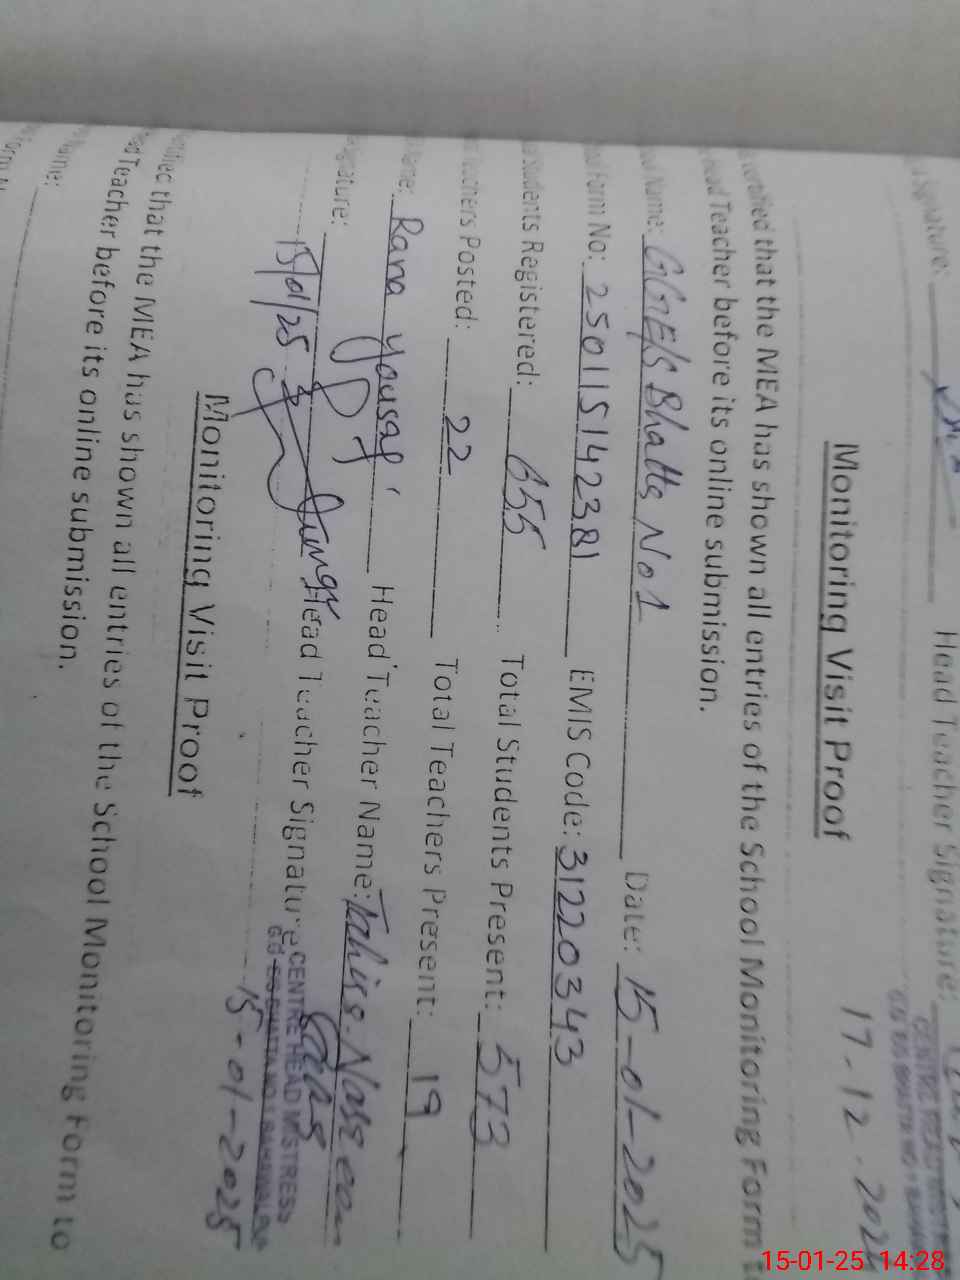 Signature:
Head Teacher Signature:
17-12-202
Monitoring Visit Proof
that the MEA has shown all entries of the School Monitoring Form
Head Teacher before its online submission.
Name: GGE/S Bhatta No1 Date: 15-01-2025
Form No: 250115142381 EMIS Code: 31220343
Students Registered: 655 Total Students Present: 573
Teachers Posted: 22 Total Teachers Present: 19
Name: Rana yousaf Head Teacher Name: Tahira Naseem
Signature: Head Teacher Signature
15/01/25
CENTRE HEAD MISTRESS
15-01-2025
Monitoring Visit Proof
that the MEA has shown all entries of the School Monitoring Form to
Teacher before its online submission.
Name:
15-01-25 14:28